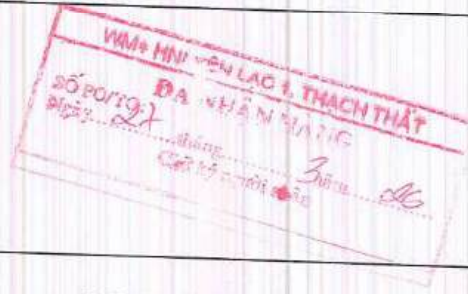 WM+ HNI YÊN LẠC 1, THẠCH THẤT
ĐÃ NHẬN HÀNG
SỐ PO/TO:
Ngày 27 tháng 3 năm 26
Chữ ký người nhận